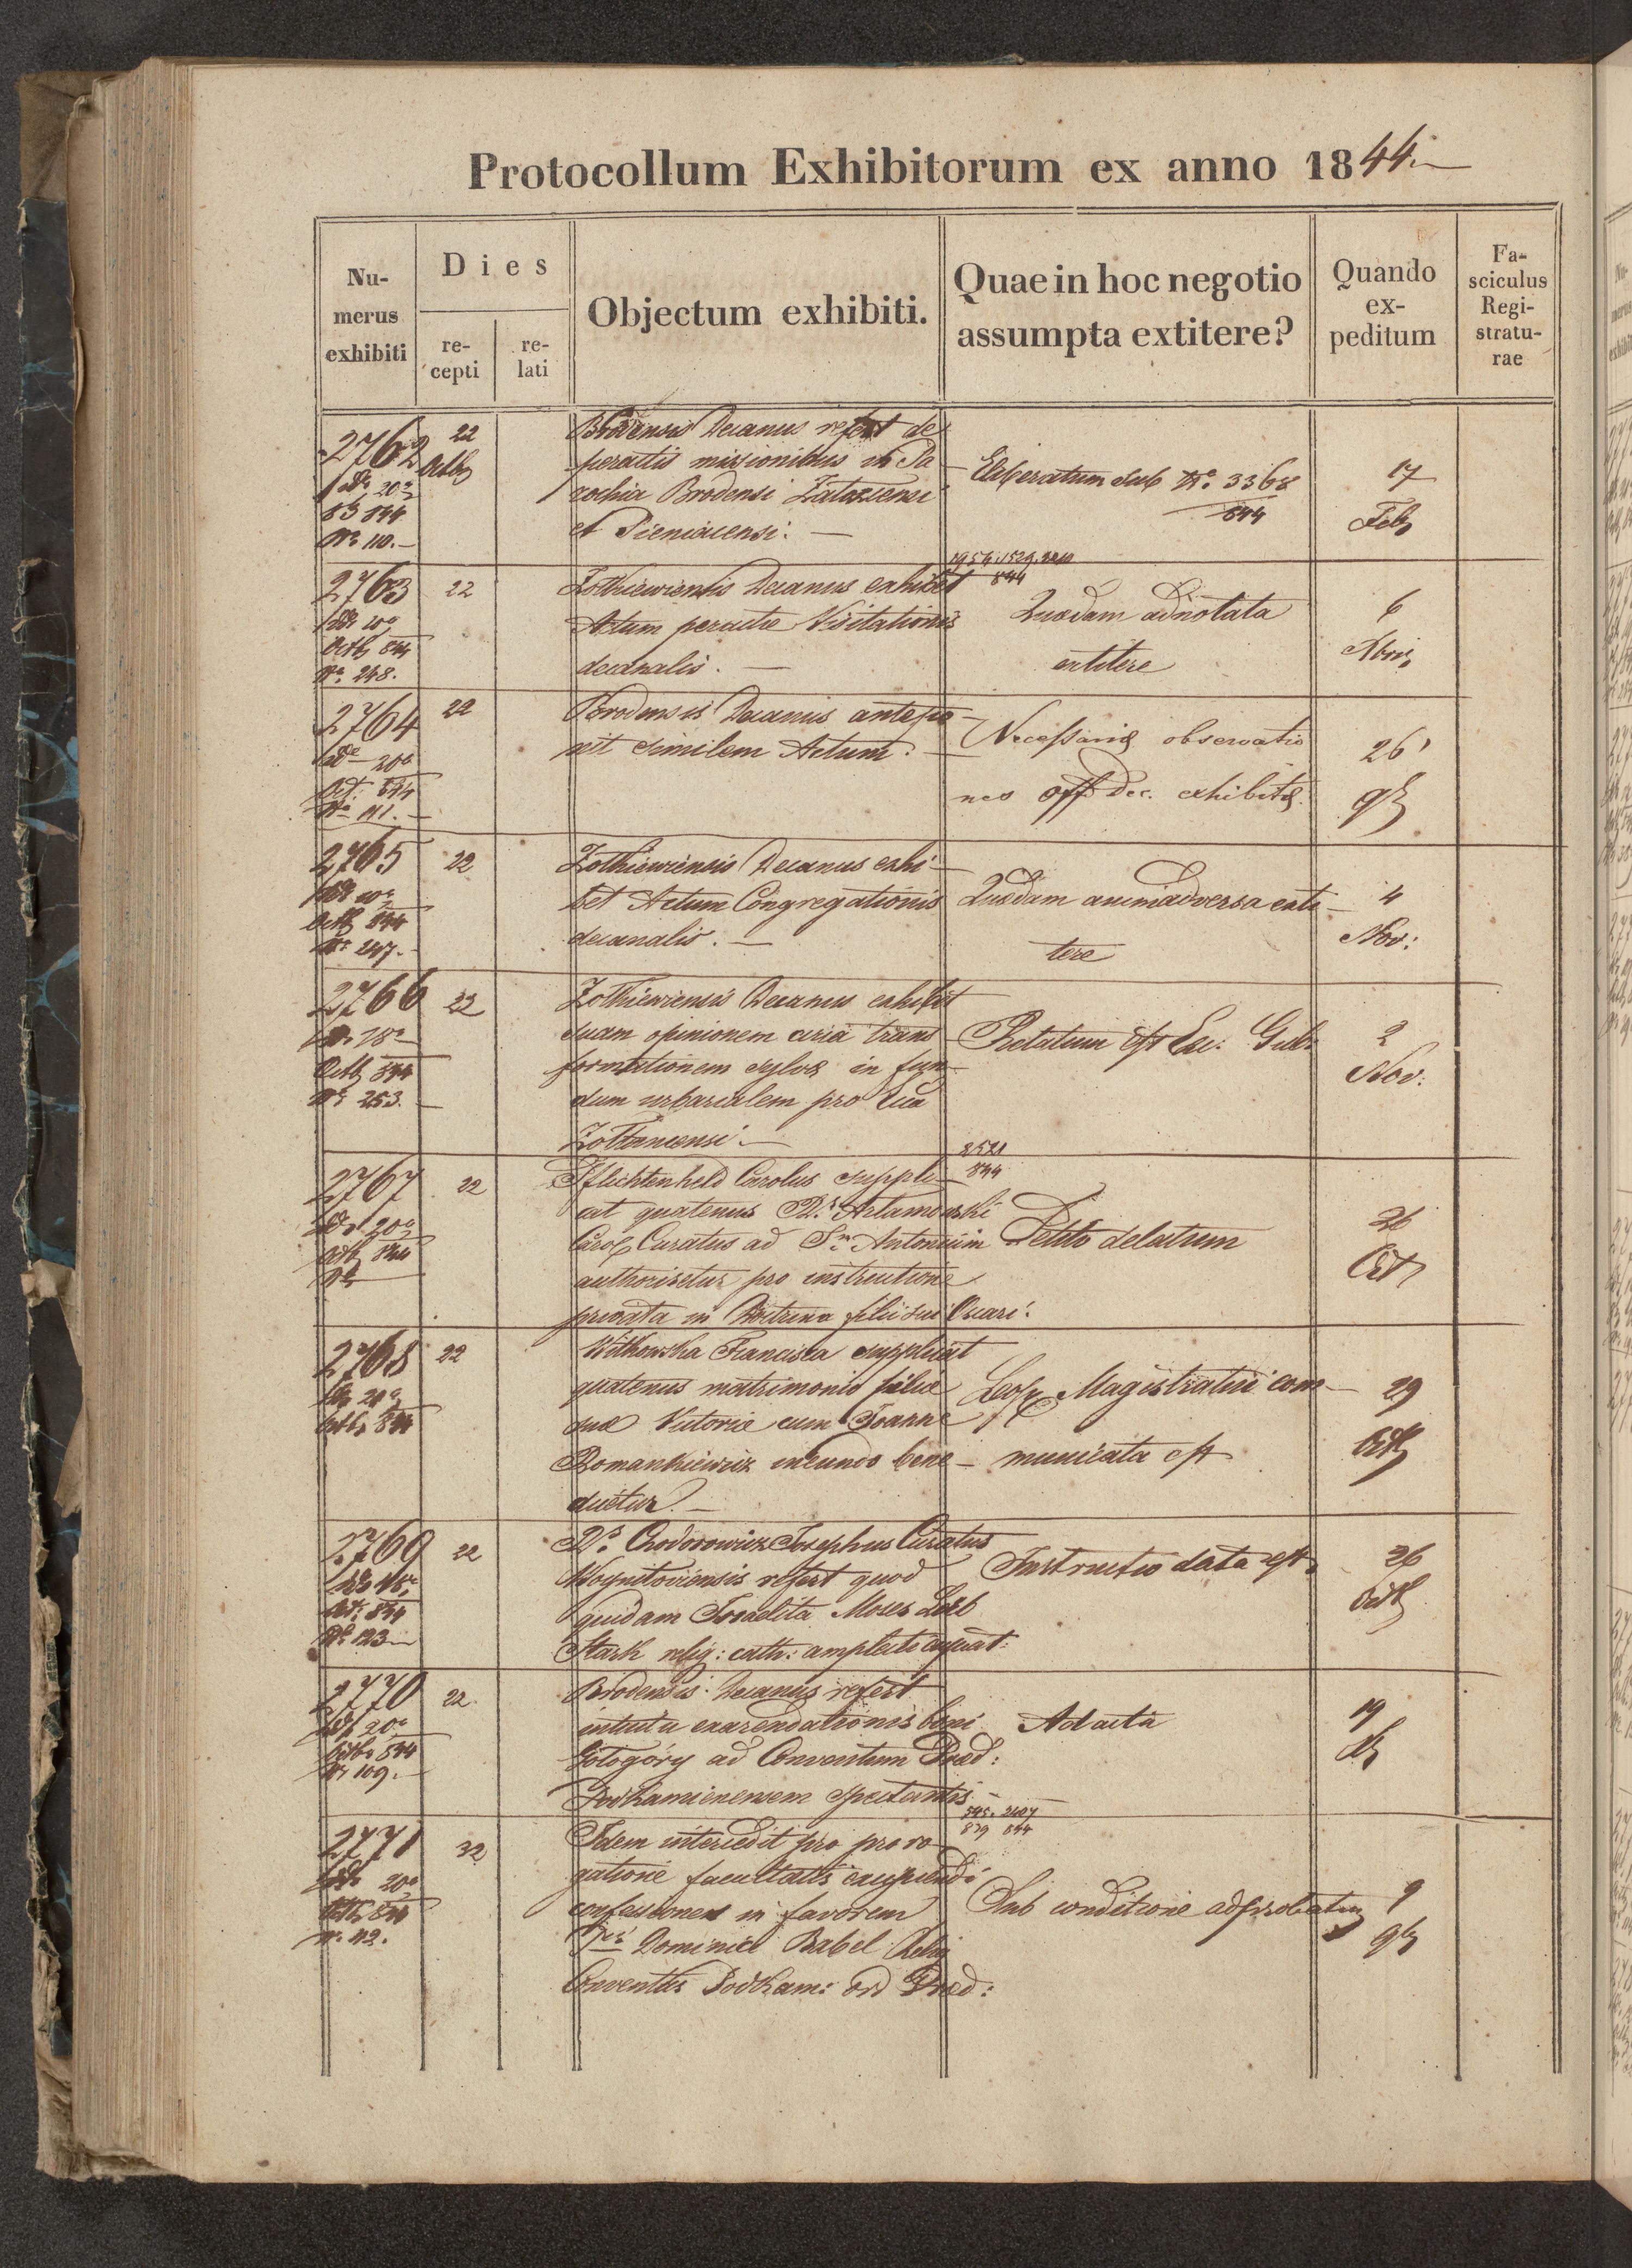 Protocollum Exhibitorum ex anno 1844.
Nu-
merus
exhibiti
Dies
re-
cepti
re-
lati
Objectum exhibiti.
Quae in hoc negotio
assumpta extitere?
Quando
ex-
peditum
Fa-
sciculus
Regi-
stratu-
rae
2762
20a
844
No 110.
22
Octb
Brodensis Decanus refert de
peractis missionibus in Pa
rochia Brodensi
et Pieniacensi.
Elaboratum sub No. 3368
844
17
Feb
2763
10a
Octb 844
No. 248.
22
Zolkiewiensis Decanus exhibet
Actum peractae Visitationis
decanalis.
1954. 1529.
844
Quaedam adnotata
extitere
6
2764
20a
Oct: 844
No 111.
22
Brodensis Decanus antepo-
nit similem Actum.
Necessariae observatio
nes off Dec. exhibitae
26
9b
2765
10a
Octb 844
No 247.
22
Zolkiewiensis Decanus exhi-
bet Actum Congregationis
decanalis.
Quaedam animadversa exti-
tere
4
Nov:
2766
18a
Octb 844
No 253.
22
Zolkiewiensis Decanus exhibet
suam opinionem circa trans
formationem sylvae in fun-
dum urbarialem pro
Zoltancensi
Relatum est Exc: Gub:
2
Nov:
2767
20a
Octb 844
No
22
Pflichtenheld Carolus suppli-
cat quatenus Artamowski
Carol Curatus ad Sm Antonium
authorisetur pro instructione
privata in Doctrina filii sui Oscari.
2521
844
Petito delatum
26
Oct
2768
20a
Octb 844
22
Witkowska Francisca supplicat
quatenus matrimonio filiae
suae Victoriae cum Joanne
Romankiewicz ineundo bene-
dicetur.
Leop Magistratui com-
municata est
29
Octb
2769
18a
Oct. 844
No 123
22
Rs. Chodorowicz Josephus Curatus
Woynitoviensis refert quod
quidam Israelita Moses Leib
Stark relig: cath: amplecti cupiat.
Instructio data est.
26
Octb
2770
20a
Octb 844
No 109.
22.
Brodensis Decanus refert
intuitu exarendationis boni
Gologóry ad Conventum Praed:
Podkamienensem spectantis
Ad acta
19
2771
20a
Octb 844
N. 112.
22
Idem intercedit pro proro-
gatione facultatis excipiendi
confessiones in favorem
Dominici Babel Relig
Conventus Podkam: Ord Praed:
545. 2407
839 844
Sub conditione adprobatum
9
9b